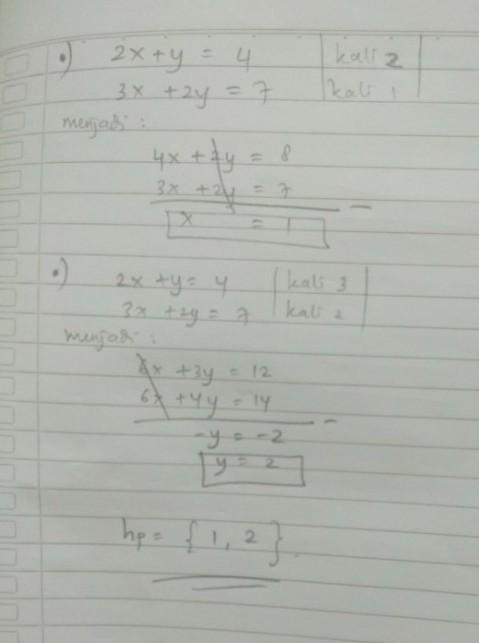 •) 2x + y = 4 | kali 2 |
3x + 2y = 7 | kali 1 |
menjadi :
4x + 2y = 8
3x + 2y = 7 –
x = 1
•) 2x + y = 4 | kali 3 |
3x + 2y = 7 | kali 2 |
menjadi :
6x + 3y = 12
6x + 4y = 14 –
-y = -2
y = 2
hp = { 1, 2 }.